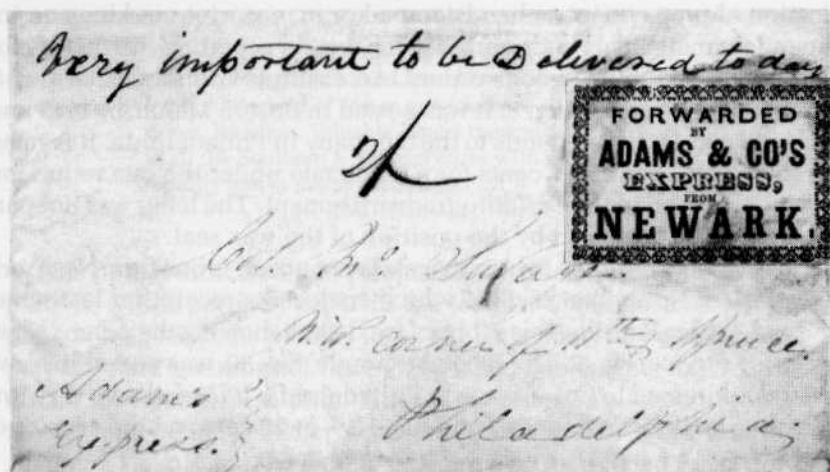 Very important to be Delivered to day
FORWARDED
BY
ADAMS & CO'S
EXPRESS,
FROM
NEWARK.
N.W. corner of 11th & Spruce.
Adams
Express.
Philadelphia